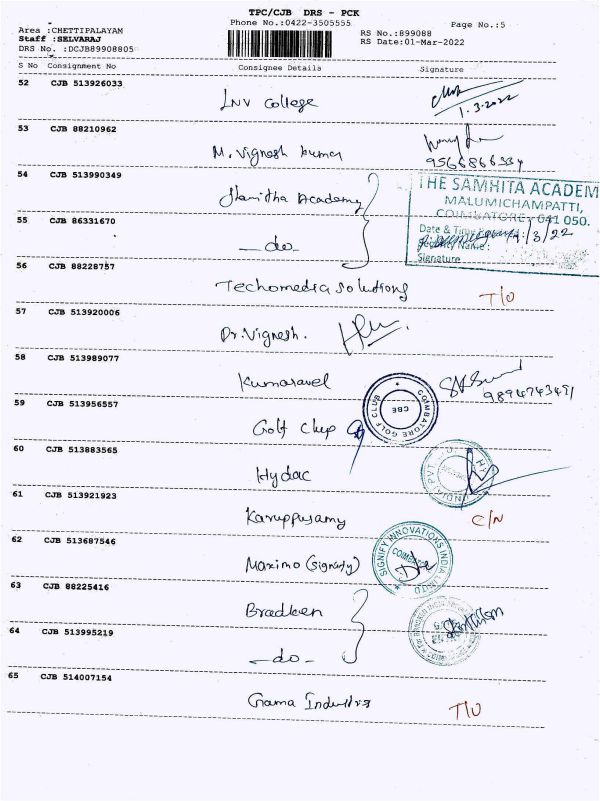 TPC/CJB DRS - PCK
Phone No.:0422-3505555
Page No.:5
Area :CHETTIPALAYAM
Staff :SELVARAJ
DRS No. :DCJB89908805
RS No.:899088
RS Date:01-Mar-2022
S No Consignment No Consignee Details Signature
52 CJB 513926033
LNV College
1.3.2022
53 CJB 88210962
M. Vignesh kumar
54 CJB 513990349
Academy
THE SAMHITA ACADEM
MALUMICHAMPATTI,
COIMBATORE - 641 050.
Date & Time
Name :
Signature
55 CJB 86331670
-do-
56 CJB 88228757
Techomedia Solutions T/O
57 CJB 513920006
Dr. Vignesh.
58 CJB 513989077
Kumaravel
59 CJB 513956557
Golf Clup
COIMBATORE GOLF CLUB
CBE
60 CJB 513883565
Hydac
61 CJB 513921923
Karuppusamy C/N
62 CJB 513687546
Maximo (Signify)
SIGNIFY INNOVATIONS INDIA LIMITED
63 CJB 88225416
Bradken
64 CJB 513995219
-do-
65 CJB 514007154
Gama Industries T/O